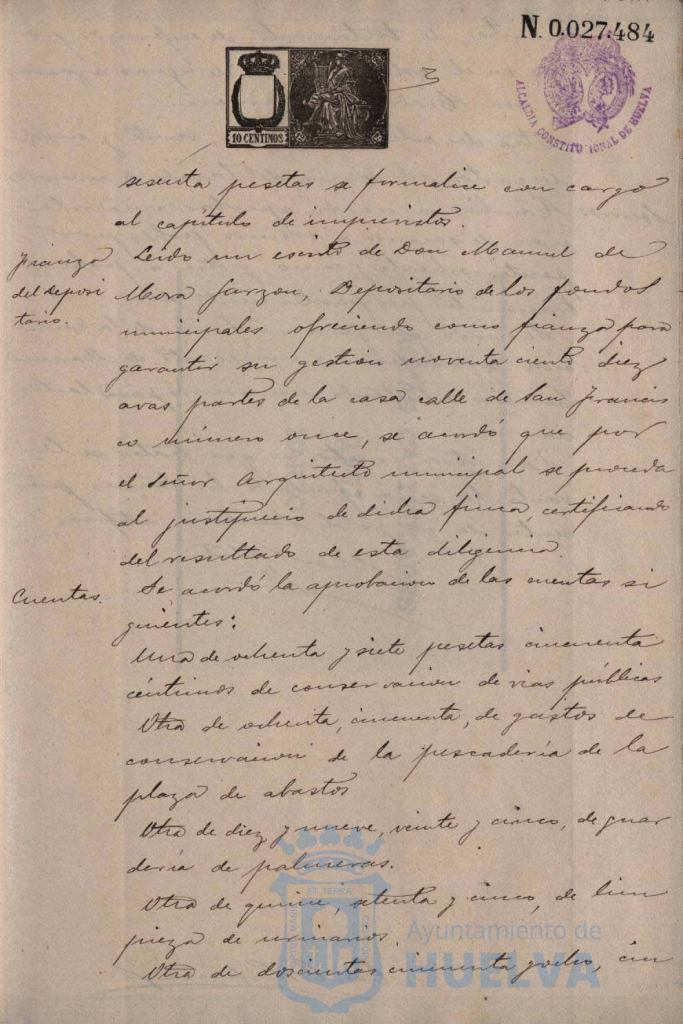 N. 0.027.484
ALCALDIA CONSTITUCIONAL DE HUELVA
10 CENTIMOS
sesenta pesetas se formalice con cargo
al capitulo de imprevistos.
Fianza
del Deposi
tario.
Leido un escrito de Don Manuel de
Mora Garzon, Depositario de los fondos
municipales ofreciendo como fianza para
garantir su gestion noventa ciento diez
avas partes de la casa calle de San Francis
co número once, se acordó que por
el Señor Arquitecto municipal se proceda
al justiprecio de dicha finca, certificando
del resultado de esta diligencia.
Cuentas.
Se acordó la aprobacion de las cuentas si
guientes:
Una de ochenta y siete pesetas cincuenta
céntimos de conservacion de vias públicas
Otra de ochenta, cincuenta, de gastos de
conservacion de la pescadería de la
plaza de abastos
Otra de diez y nueve, veinte y cinco, de guar
dería de palmeras.
Otra de quince, setenta y cinco, de lim
pieza de urinarios.
Otra de doscientas cincuenta y ocho, cin
Ayuntamiento de
HUELVA